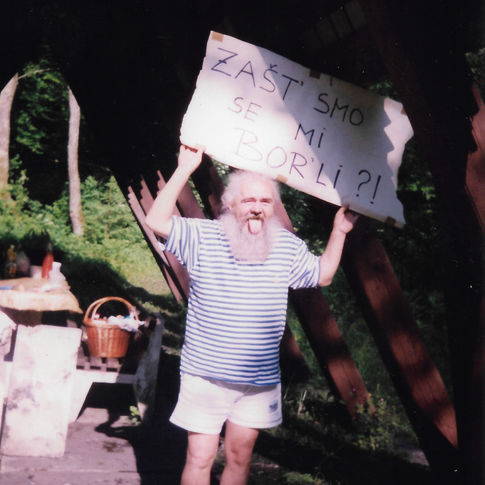 ZAŠT' SMO
SE MI
BOR'LI?!